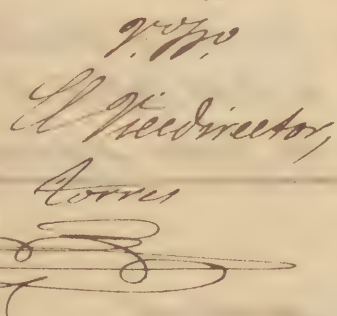 V.º B.º
El Vicedirector,
Torres